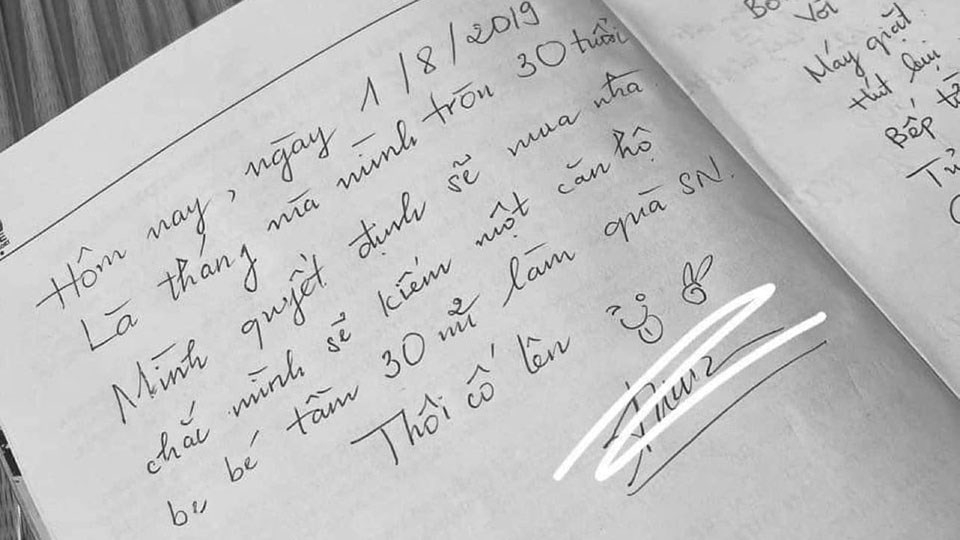 1/8/2019
Hôm nay, ngày
Là tháng mà mình tròn 30 tuổi
Mình quyết định sẽ mua nhà
chắc mình sẽ kiếm một căn hộ
be bé tầm 30 m2 làm quà SN.
Thôi cố lên
Với
Máy giặt
Hút bụi
Bếp